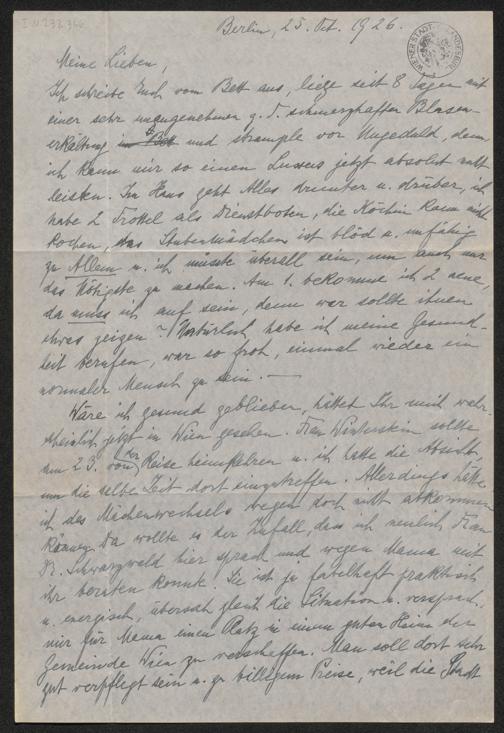 I.N. 232.366
Berlin, 25. Okt. 1926.
WIENER STADT- LANDESBIBL.
Meine Lieben,
Ich schreibe Euch vom Bett aus, liege seit 8 Tagen mit
einer sehr unangenehmen u. z. T. schmerzhaften Blasen-
erkältung im Bett und strample vor Ungeduld, denn
ich kann mir so einen Luxus jetzt absolut nicht
leisten. Im Haus geht Alles drunter u. drüber, ich
habe 2 Trottel als Dienstboten, die Köchin kann nicht
kochen, das Stubenmädchen ist blöd u. unfähig
zu Allem u. ich müsste überall sein, um auch nur
das Nötigste zu machen. Am 1. bekomme ich 2 neue,
da muss ich auf sein, denn wer sollte ihnen
etwas zeigen? Natürlich habe ich meine Gesund-
heit berufen, war so froh, einmal wieder ein
normaler Mensch zu sein. —
Wäre ich gesund geblieben, hättet Ihr mich wahr-
scheinlich jetzt in Wien gesehen. Frau Winterstein sollte
am 23. von der Reise heimkehren u. ich hatte die Absicht,
um die selbe Zeit dort einzutreffen. Allerdings hätte
ich des Mädchenwechsels wegen doch nicht abkommen
können. Da wollte es der Zufall, dass ich neulich Frau
Dr. Schwarzwald hier sprach und wegen Mama mit
ihr beraten konnte. Sie ist ja fabelhaft praktisch
u. energisch, übersah gleich die Situation u. versprach,
mir für Mama einen Platz in einem guten Heim der
Gemeinde Wien zu verschaffen. Man soll dort sehr
gut verpflegt sein u. zu billigem Preise, weil die Stadt